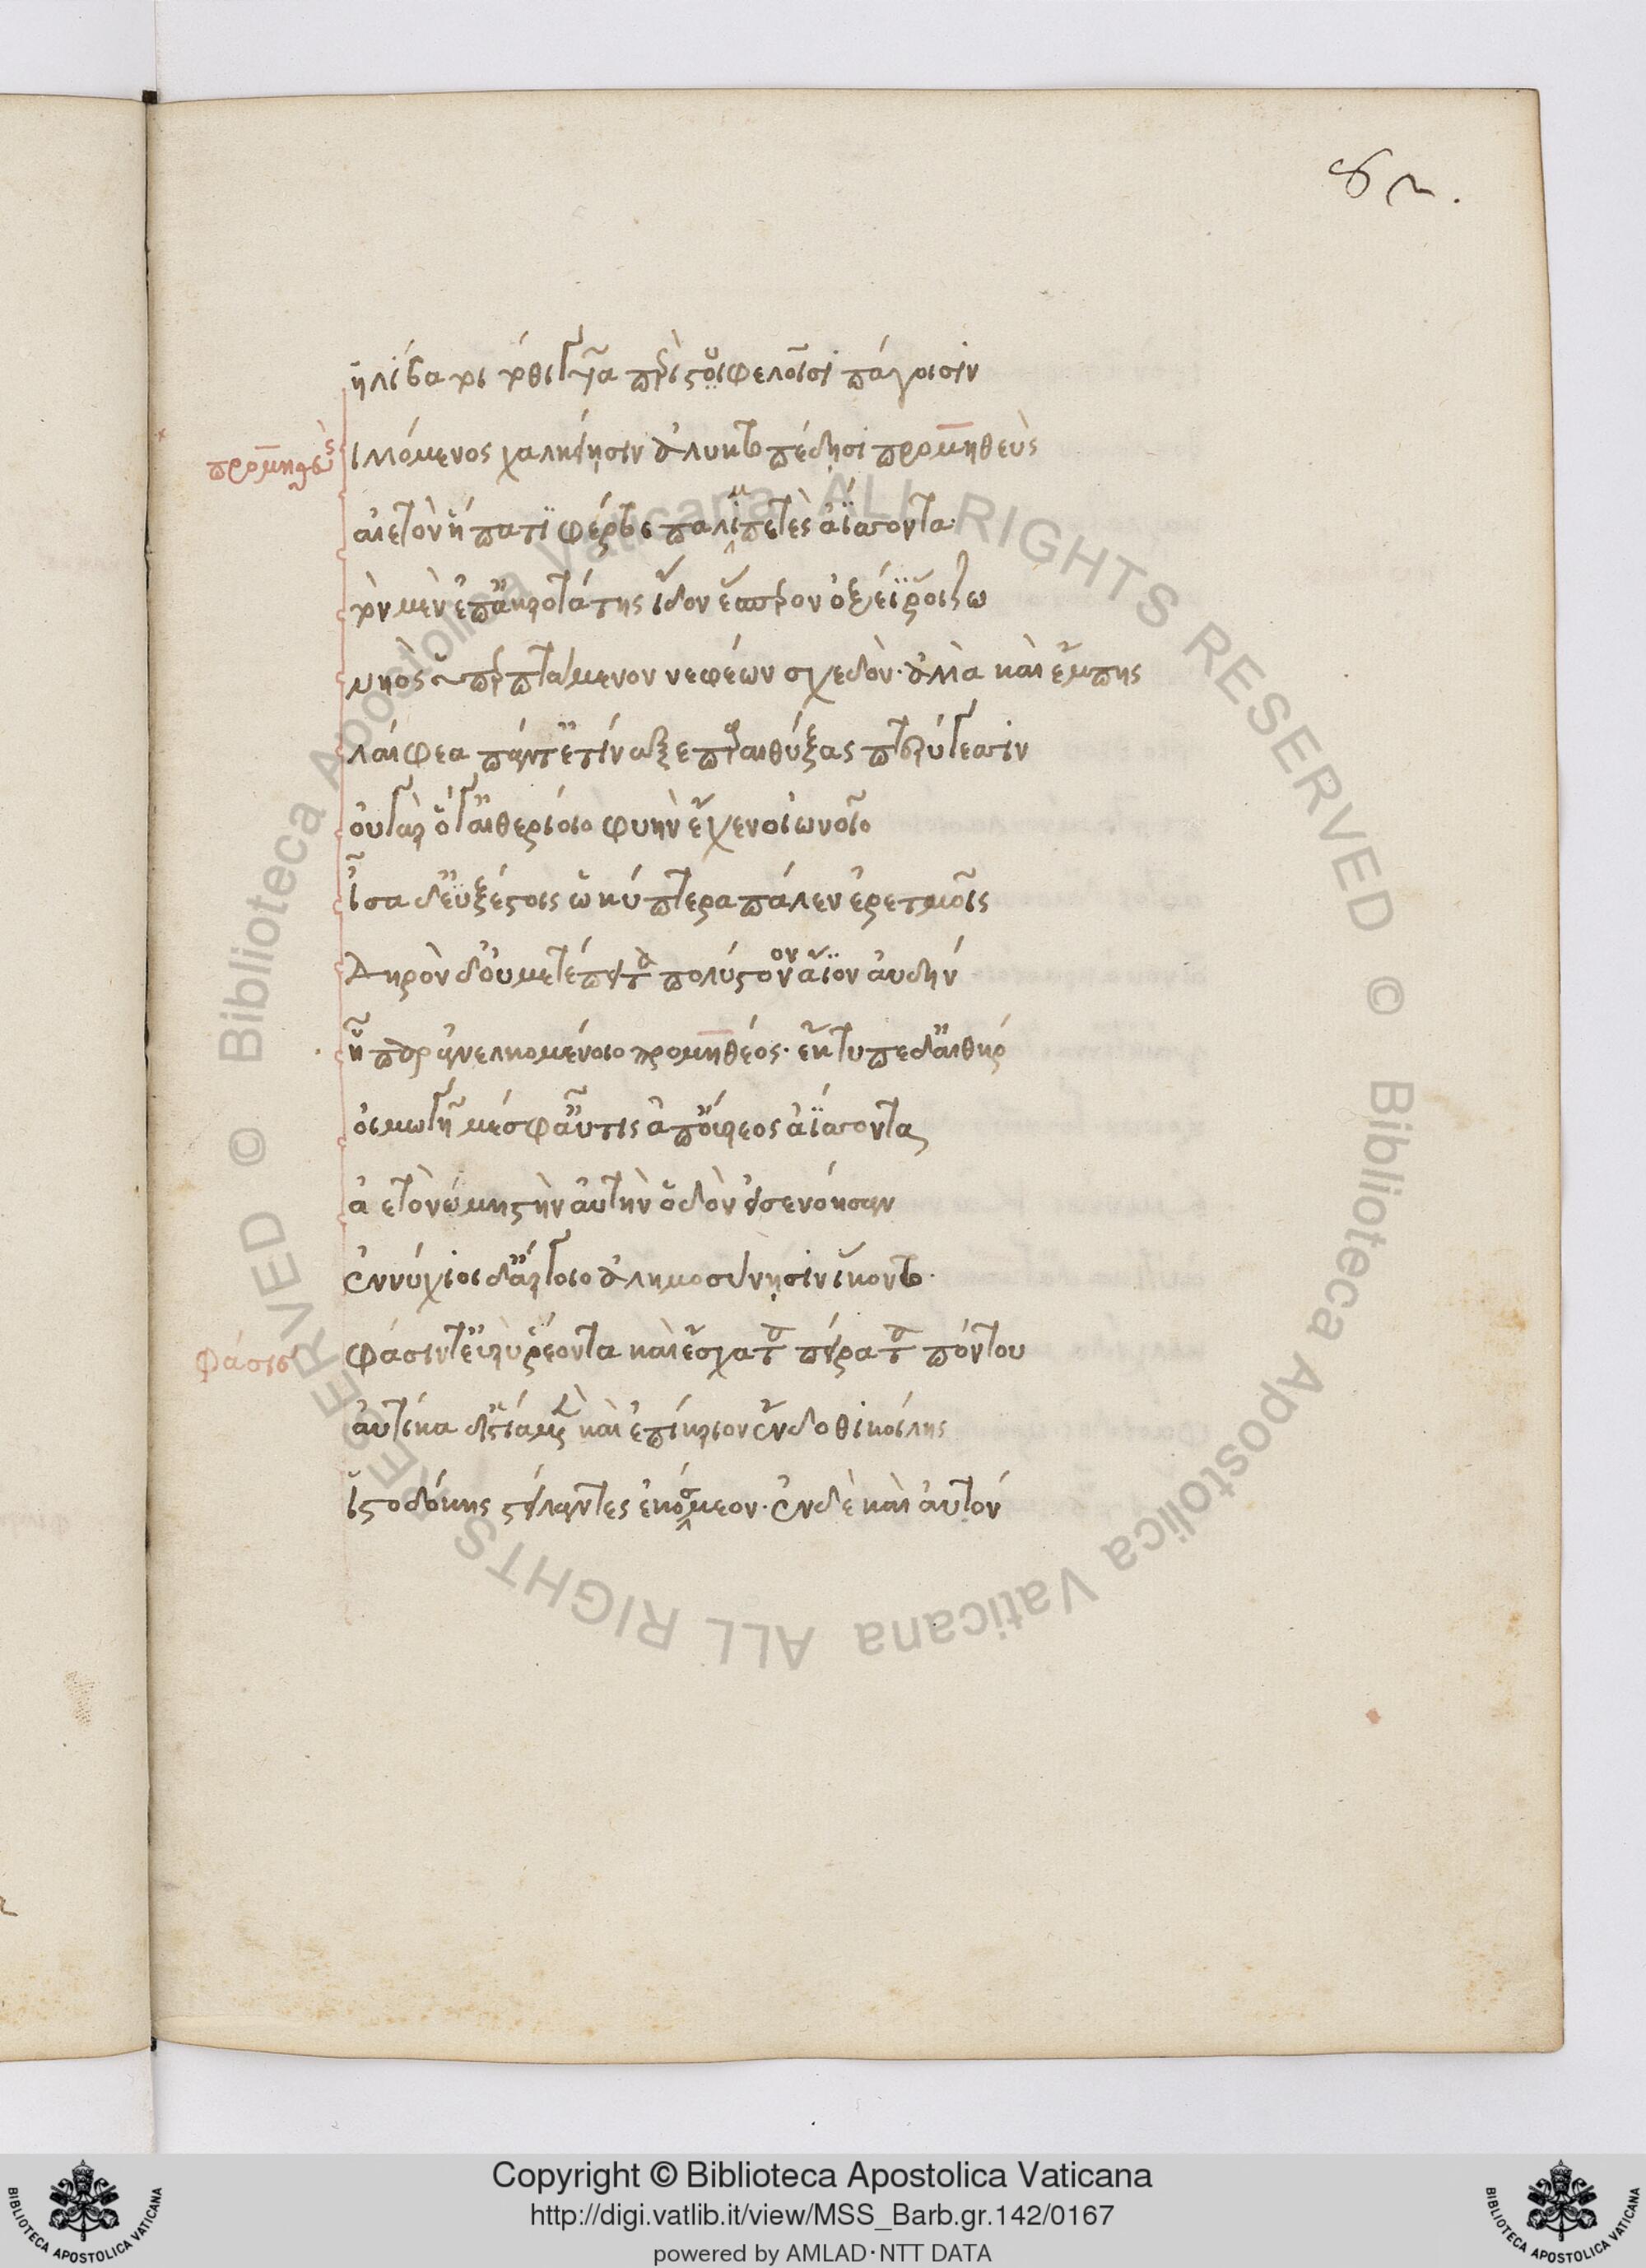 82.
ἠλίβατοι τόθι γυῖα περὶ στυφελοῖσι πάγοισιν
προμηθεὺς
ἰλλόμενος χαλκέῃσιν ἀλυκτοπέδῃσι προμηθεὺς
αἰετὸν ἥπατι φέρβε παλιμπετὲς ἀΐσσοντα·
τὸν μὲν ἐπ' ἀκροτάτης ἴδον ἕσπερον ὀξέϊ ῥοίζω
νηὸς ὑπερπτάμενον νεφέων σχεδόν· ἀλλὰ καὶ ἔμπης
λαίφεα πάντ' ἐτίναξε παραιθύξας πτερύγεσσιν
οὐ γὰρ ὅγ' αἰθερίοιο φυὴν ἔχεν οἰωνοῖο
ἶσα δ' ἐϋξέστοις ὠκύπτερα πάλεν ἐρετμοῖς
Δηρὸν δ' οὐ μετέπειτα πολύστονον ἄϊον αὐδήν
ἧπαρ ἀνελκομένοιο προμηθέος· ἔκτυπε δ' αἰθήρ
οἰμωγῇ μέσφ' αὖτις ἀπ' οὔρεος ἀΐσσοντα
αἰετὸν ὠμηστὴν αὐτὴν ὁδὸν εἰσενόησαν
ἐννύχιοι δ' ἄργοιο δαημοσύνῃσιν ἵκοντο·
φάσις
φᾶσίν τ' εὐρὺ ῥέοντα καὶ ἔσχατα πείρατα πόντου
αὐτίκα δ' ἱστία μὲν καὶ ἐπίκριον ἔνδοθι κοίλης
ἱστοδόκης στείλαντες ἐκόσμεον· ἐν δὲ καὶ αὐτόν
Biblioteca Apostolica Vaticana ALL RIGHTS RESERVED © Biblioteca Apostolica Vaticana ALL RIGHTS RESERVED ©
Copyright © Biblioteca Apostolica Vaticana
http://digi.vatlib.it/view/MSS_Barb.gr.142/0167
powered by AMLAD·NTT DATA
BIBLIOTECA APOSTOLICA VATICANA
BIBLIOTECA APOSTOLICA VATICANA